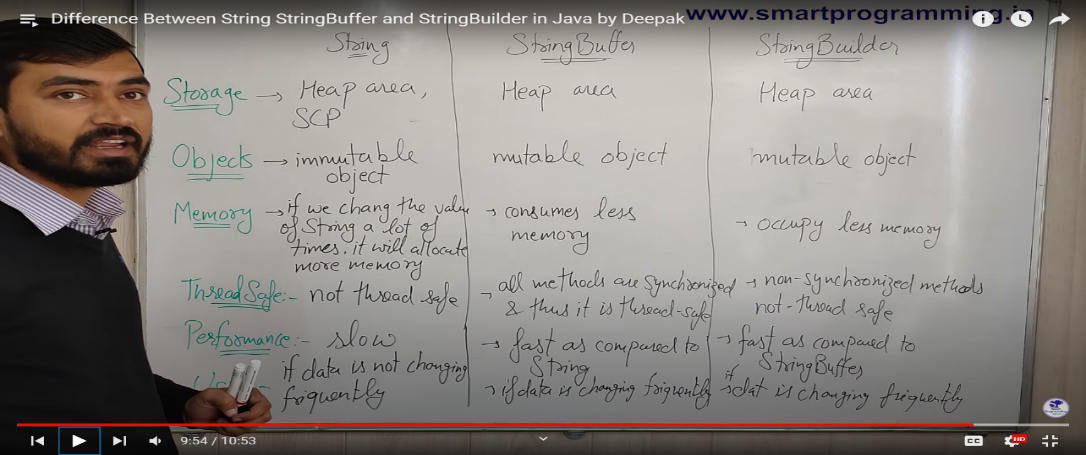 Difference Between String StringBuffer and StringBuilder in Java by Deepak
www.smartprogramming.in
String StringBuffer StringBuilder
Storage → Heap area, SCP
Heap area
Heap area
Objects → immutable object
mutable object
mutable object
Memory → if we chang the value
of String a lot of
times, it will allocate
more memory
→ consumes less
memory
→ occupy less memory
ThreadSafe:- not thread safe
→ all methods are Synchronized
& thus it is thread-safe
→ non-synchronized methods
not-thread safe
Performance:- slow
→ fast as compared to
String
→ fast as compared to
StringBuffer
if data is not changing
friquently
→ if data is changing friquently
→ if dat is changing friquently
9:54 / 10:53
CC
HD